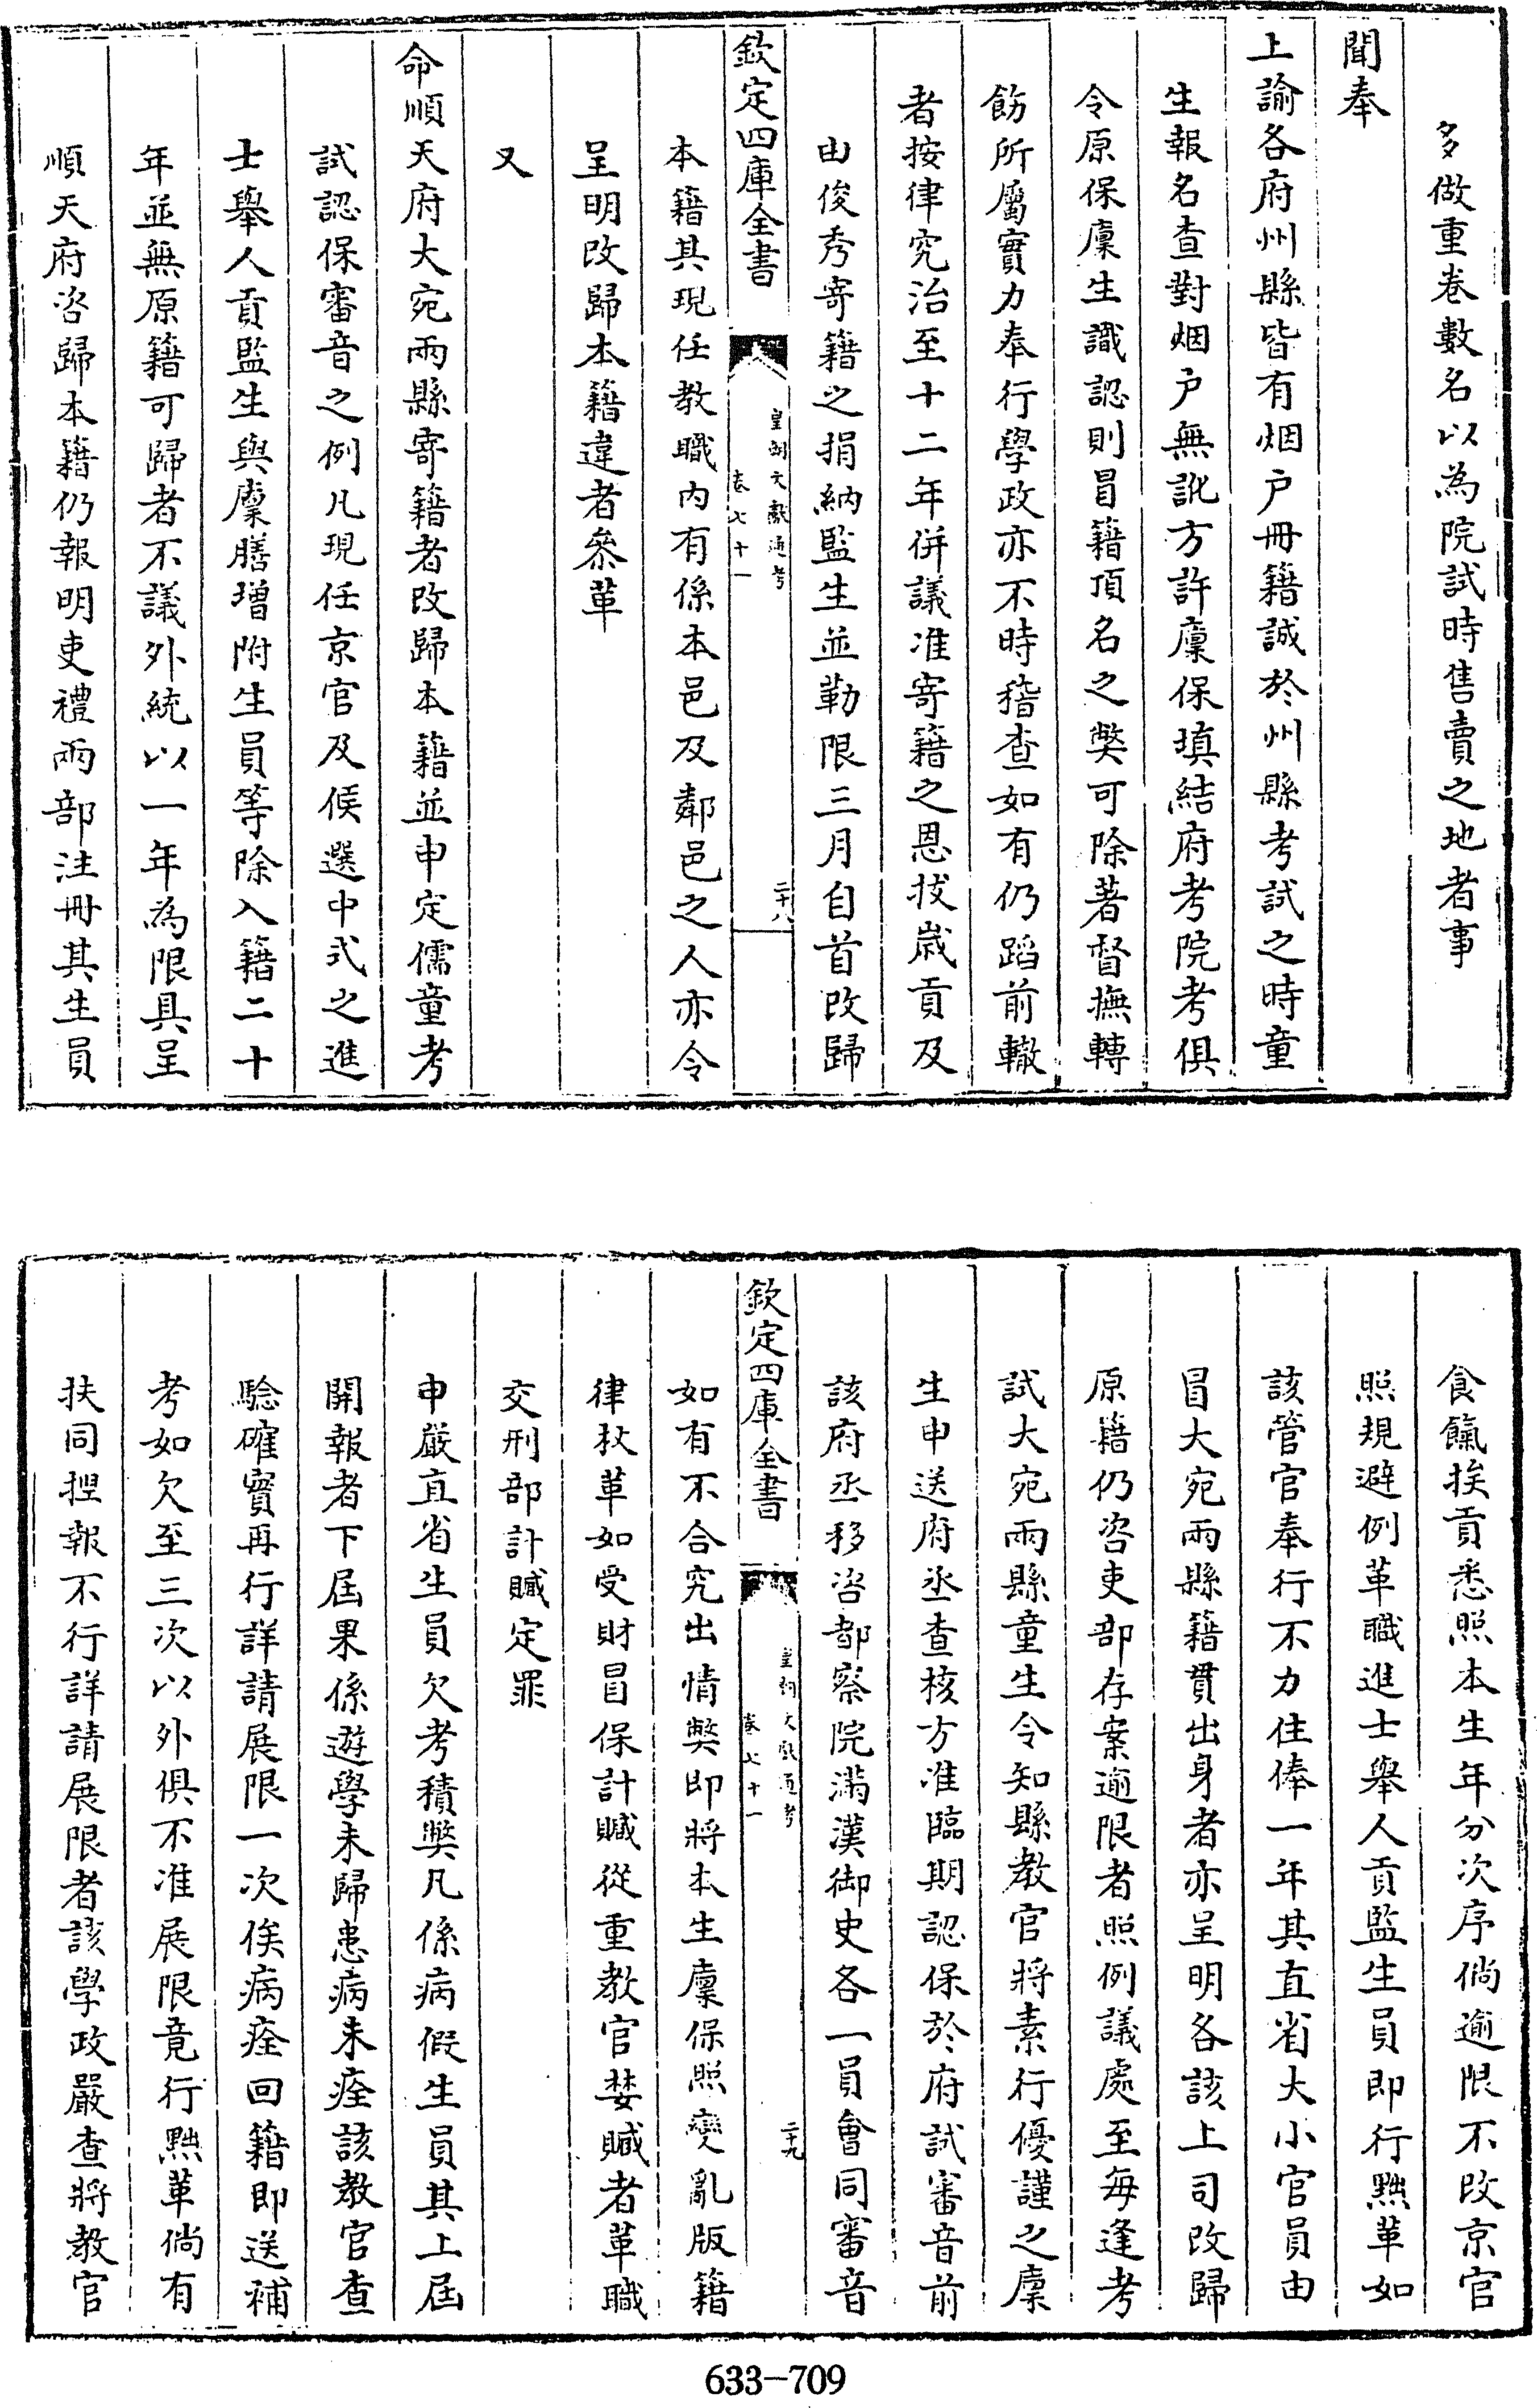 多做重卷數名以為院試時售賣之地者事
聞奉
上諭各府州縣皆有烟户冊籍誠於州縣考試之時童
生報名查對烟户無訛方許廩保填結府考院考俱
令原保廩生識認則冒籍頂名之弊可除著督撫轉
飭所屬實力奉行學政亦不時稽查如有仍蹈前轍
者按律究治至十二年併議准寄籍之恩拔歲貢及
由俊秀寄籍之捐納監生並勒限三月自首改歸
欽定四庫全書
皇朝文獻通考
卷七十一
二十八
本籍其現任教職内有係本邑及鄰邑之人亦令
呈明改歸本籍違者叅革
又
命順天府大宛兩縣寄籍者改歸本籍並申定儒童考
試認保審音之例凡現任京官及候選中式之進
士舉人貢監生與廩膳增附生員等除入籍二十
年並無原籍可歸者不議外統以一年為限具呈
順天府咨歸本籍仍報明吏禮兩部注冊其生員
食餼挨貢悉照本生年分次序倘逾限不改京官
照規避例革職進士舉人貢監生員即行黜革如
該管官奉行不力住俸一年其直省大小官員由
冒大宛兩縣籍貫出身者亦呈明各該上司改歸
原籍仍咨吏部存案逾限者照例議處至每逢考
試大宛兩縣童生令知縣教官將素行優謹之廩
生申送府丞查核方准臨期認保於府試審音前
該府丞移咨都察院滿漢御史各一員會同審音
欽定四庫全書
皇朝文獻通考
卷七十一
二十九
如有不合究出情弊即將本生廩保照變亂版籍
律杖革如受財冒保計贓從重教官婪贓者革職
交刑部計贓定罪
申嚴直省生員欠考積弊凡係病假生員其上屆
開報者下屆果係遊學未歸患病未痊該教官查
騐確實再行詳請展限一次俟病痊回籍即送補
考如欠至三次以外俱不准展限竟行黜革倘有
扶同捏報不行詳請展限者該學政嚴查將教官
633-709